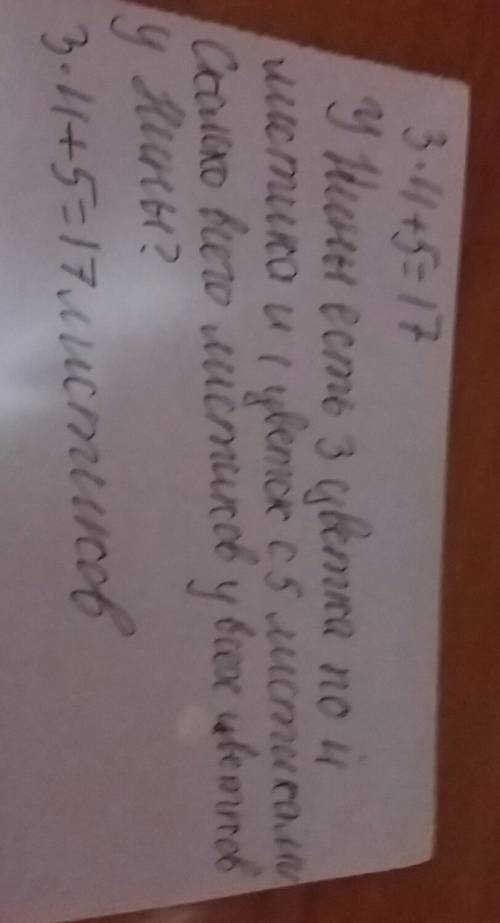 3·4+5=17
У Нины есть 3 цветка по 4
листика и 1 цветок с 5 листиками
Сколько всего листиков у всех цветков
у Нины?
3·4+5=17 листиков